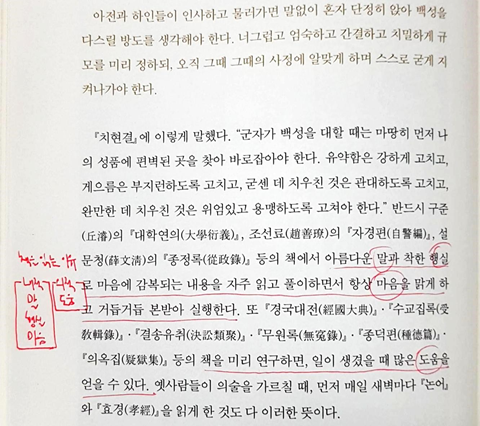 아전과 하인들이 인사하고 물러가면 말없이 혼자 단정히 앉아 백성을
다스릴 방도를 생각해야 한다. 너그럽고 엄숙하고 간결하고 치밀하게 규
모를 미리 정하되, 오직 그때 그때의 사정에 알맞게 하며 스스로 굳게 지
켜나가야 한다.
『치현결』에 이렇게 말했다. “군자가 백성을 대할 때는 마땅히 먼저 나
의 성품에 편벽된 곳을 찾아 바로잡아야 한다. 유약함은 강하게 고치고,
게으름은 부지런하도록 고치고, 굳센 데 치우친 것은 관대하도록 고치고,
완만한 데 치우친 것은 위엄있고 용맹하도록 고쳐야 한다.” 반드시 구준
(丘濬)의 『대학연의(大學衍義)』, 조선료(趙善璙)의 『자경편(自警編)』, 설
문청(薛文淸)의 『종정록(從政錄)』 등의 책에서 아름다운 말과 착한 행실
로 마음에 감복되는 내용을 자주 읽고 풀이하면서 항상 마음을 맑게 하
고 거듭거듭 본받아 실행한다. 또 『경국대전(經國大典)』·『수교집록(受
敎輯錄)』·『결송유취(決訟類聚)』·『무원록(無寃錄)』·『종덕편(種德篇)』·
『의옥집(疑獄集)』 등의 책을 미리 연구하면, 일이 생겼을 때 많은 도움을
얻을 수 있다. 옛사람들이 의술을 가르칠 때, 먼저 매일 새벽마다 『논어』
와 『효경(孝經)』을 읽게 한 것도 다 이러한 뜻이다.
책을 읽는 이유
말
행실
마음
도움